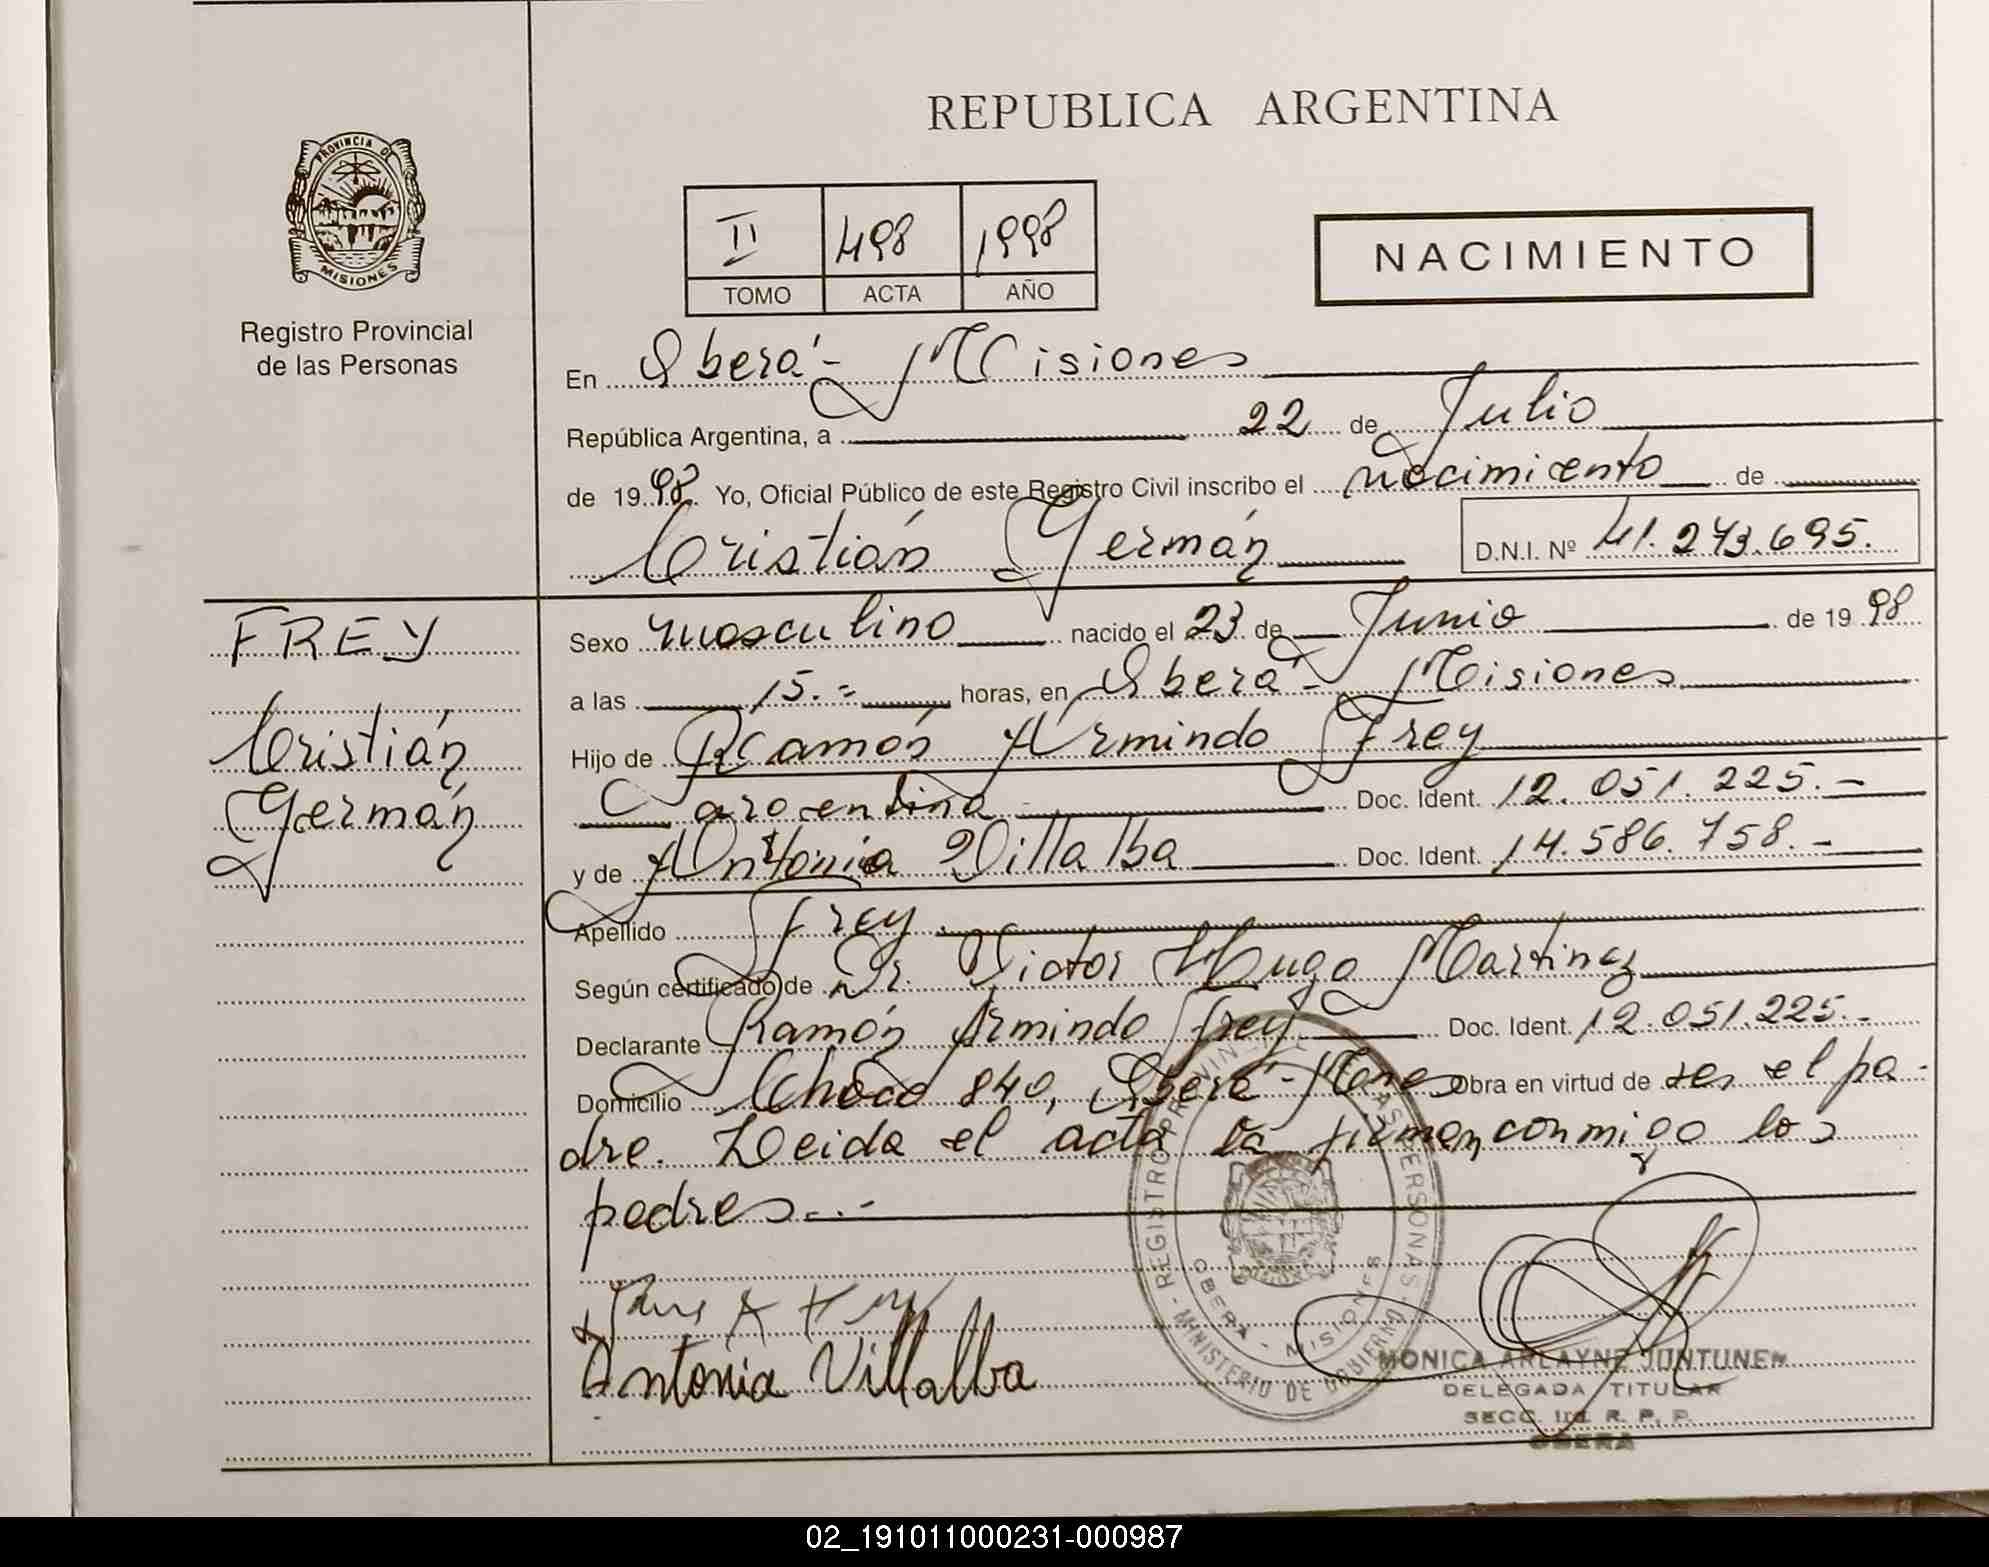 REPUBLICA ARGENTINA
PROVINCIA DE
MISIONES
Registro Provincial
de las Personas
II 498 1998
TOMO ACTA AÑO
NACIMIENTO
En Oberá - Misiones
República Argentina, a 22 de Julio
de 1998. Yo, Oficial Público de este Registro Civil inscribo el nacimiento de
Cristián Germán D.N.I. Nº 41.273.695.
FREY
Cristián
Germán
Sexo masculino nacido el 23 de Junio de 1998
a las 15.= horas, en Oberá - Misiones
Hijo de Ramón Armindo Frey
argentina Doc. Ident. 12.051.225.-
y de Antonia Villalba Doc. Ident. 14.586.758.-
Apellido Frey
Según certificado de Dr. Victor Hugo Martinez
Declarante Ramón Armindo Frey Doc. Ident. 12.051.225.-
Domicilio Chaco 840, Oberá - Mnes Obra en virtud de ser el pa-
dre. Leida el acta la firman conmigo los
padres..-
Antonia Villalba
REGISTRO PROVINCIAL DE LAS PERSONAS - MINISTERIO DE GOBIERNO -
OBERA - MISIONES
MONICA ARLAYNE JUNTUNEN
DELEGADA TITULAR
SECC. 1ra. R. P. P.
OBERA
02_191011000231-000987